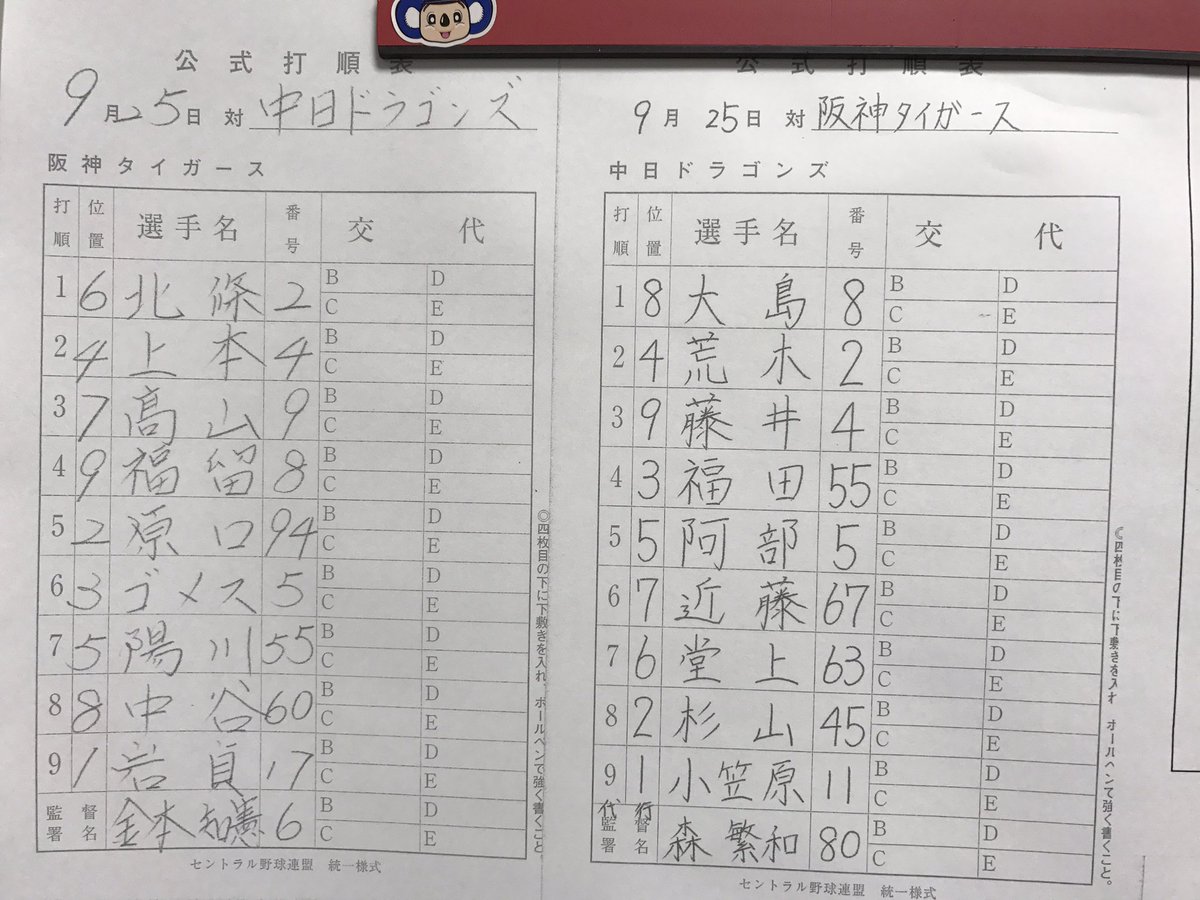 公式打順表
9月25日 対 中日ドラゴンズ
阪神タイガース
打順 位置 選手名 番号 交代
1 6 北條 2 B D
C E
2 4 上本 4 B D
C E
3 7 髙山 9 B D
C E
4 9 福留 8 B D
C E
5 2 原口 94 B D
C E
6 3 ゴメス 5 B D
C E
7 5 陽川 55 B D
C E
8 8 中谷 60 B D
C E
9 1 岩貞 17 B D
C E
監督署名 金本知憲 6 B D
C E
◎四枚目の下に下敷きを入れ、ボールペンで強く書くこと。
セントラル野球連盟 統一様式
公式打順表
9月25日 対 阪神タイガース
中日ドラゴンズ
打順 位置 選手名 番号 交代
1 8 大島 8 B D
C E
2 4 荒木 2 B D
C E
3 9 藤井 4 B D
C E
4 3 福田 55 B D
C E
5 5 阿部 5 B D
C E
6 7 近藤 67 B D
C E
7 6 堂上 63 B D
C E
8 2 杉山 45 B D
C E
9 1 小笠原 11 B D
C E
代行
監督署名 森繁和 80 B D
C E
◎四枚目の下に下敷きを入れ ボールペンで強く書くこと。
セントラル野球連盟 統一様式